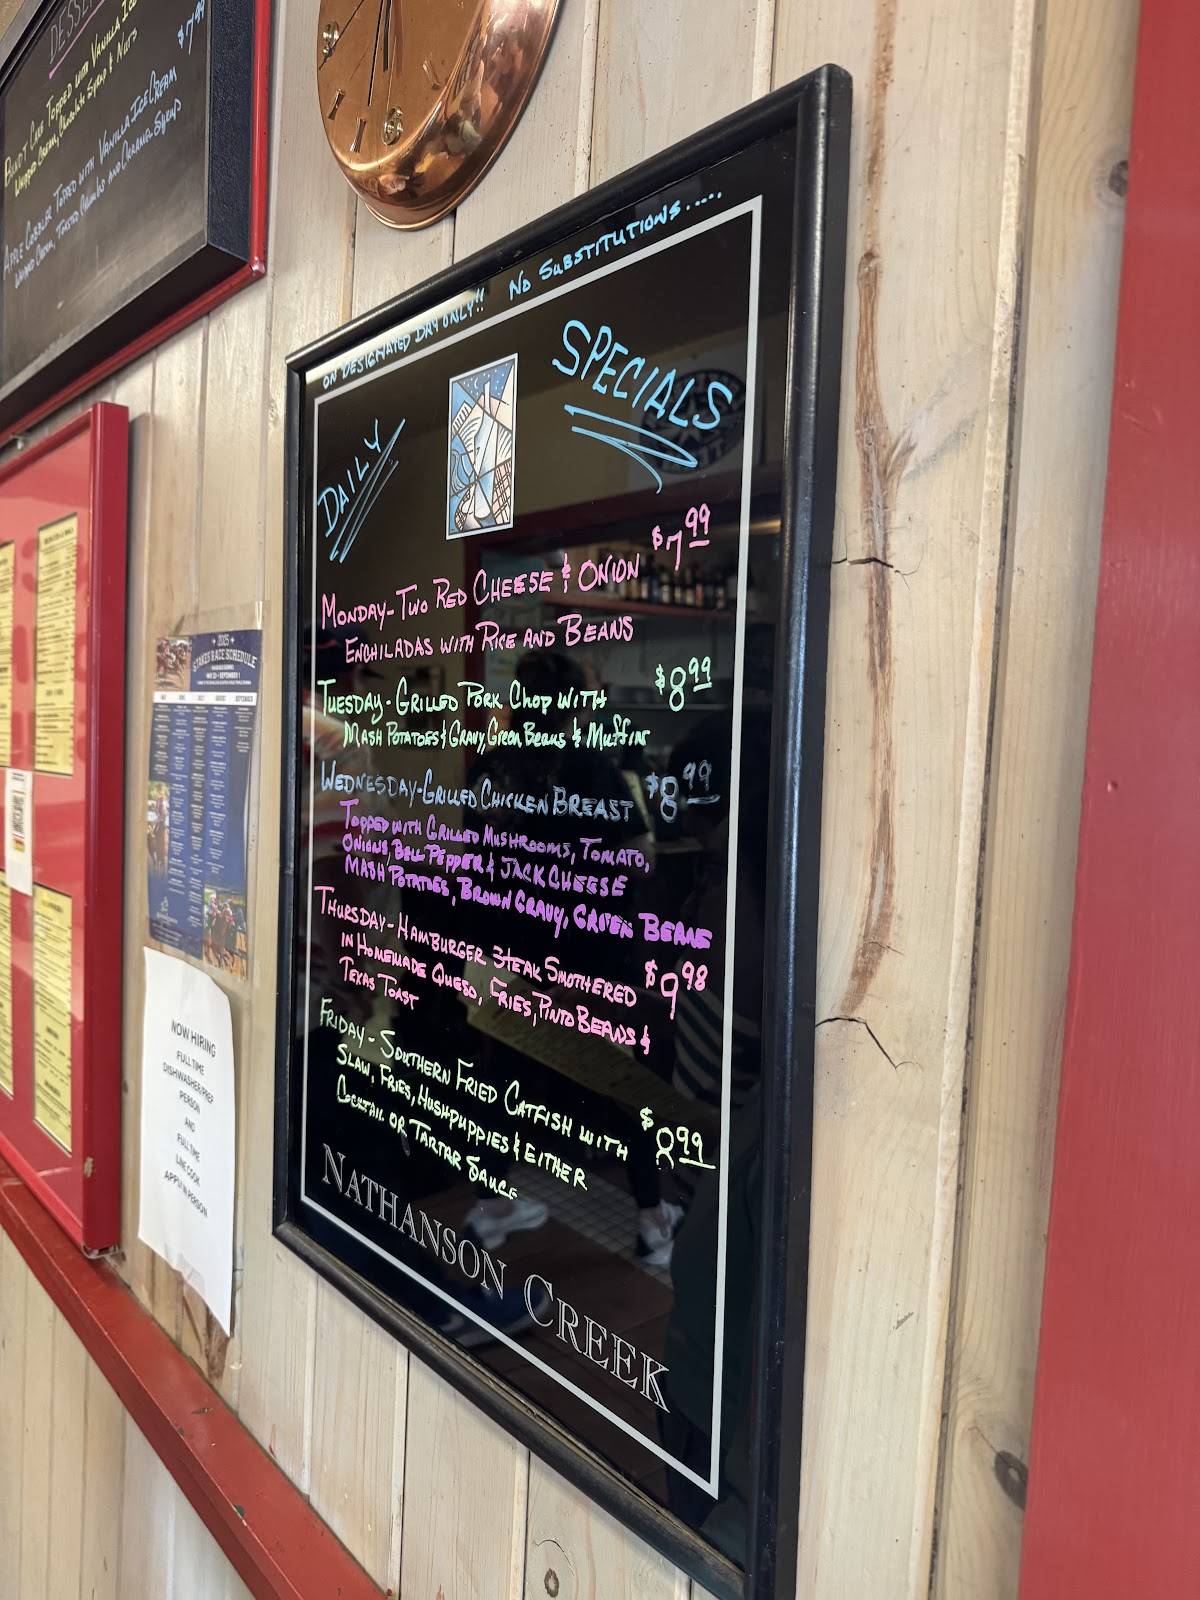 DESSE
BUNDT CAKE TOPPED WITH VANILLA ICE
WHIPPED CREAM, CHOCOLATE SYRUP & NUTS
$7.99
APPLE COBBLER TOPPED WITH VANILLA ICE CREAM
WHIPPED CREAM, TOASTED ALMONDS AND CARAMEL SYRUP
ON DESIGNATED DAY ONLY!! NO SUBSTITUTIONS.....
DAILY SPECIALS
MONDAY-TWO RED CHEESE & ONION $7.99
ENCHILADAS WITH RICE AND BEANS
TUESDAY-GRILLED PORK CHOP WITH $8.99
MASH POTATOES & GRAVY, GREEN BEANS & MUFFIN
WEDNESDAY-GRILLED CHICKEN BREAST $8.99
TOPPED WITH GRILLED MUSHROOMS, TOMATO,
ONIONS, BELL PEPPER & JACK CHEESE
MASH POTATOES, BROWN GRAVY, GREEN BEANS
THURSDAY-HAMBURGER STEAK SMOTHERED $9.98
IN HOMEMADE QUESO, FRIES, PINTO BEANS &
TEXAS TOAST
FRIDAY-SOUTHERN FRIED CATFISH WITH $8.99
SLAW, FRIES, HUSHPUPPIES & EITHER
COCKTAIL OR TARTAR SAUCE
NATHANSON CREEK
2025
STAKES RACE SCHEDULE
NOW HIRING
FULL TIME
DISHWASHER/PREP
PERSON
AND
FULL TIME
LINE COOK
APPLY IN PERSON